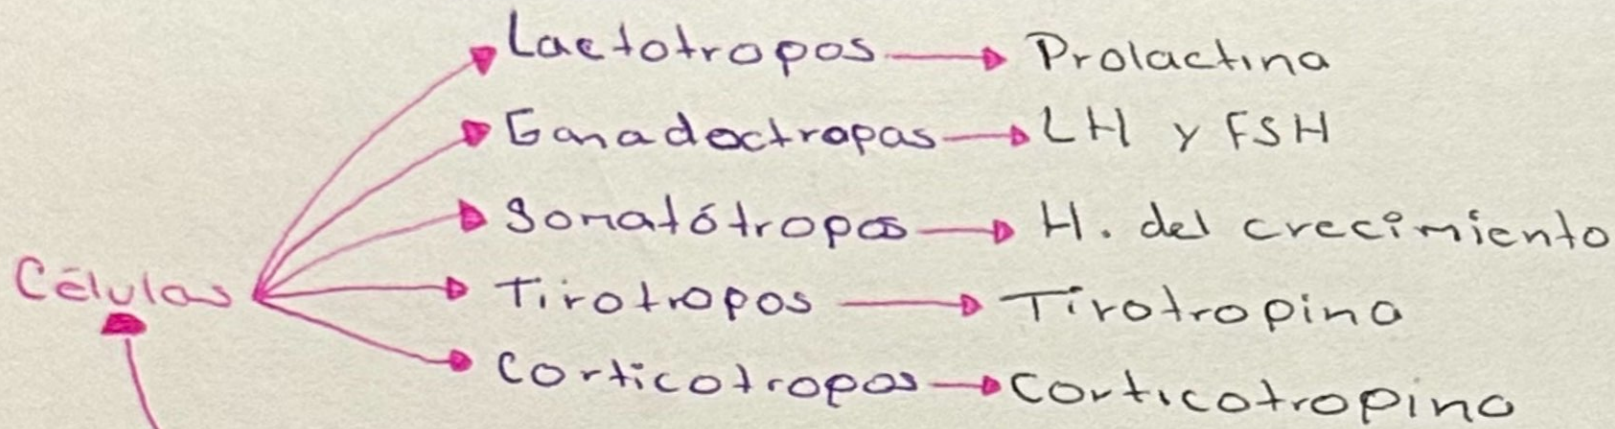 Lactotropos Prolactina
Ganadoctropas LH y FSH
Somatótropos H. del crecimiento
Células Tirotropos Tirotropina
Corticotropos Corticotropina